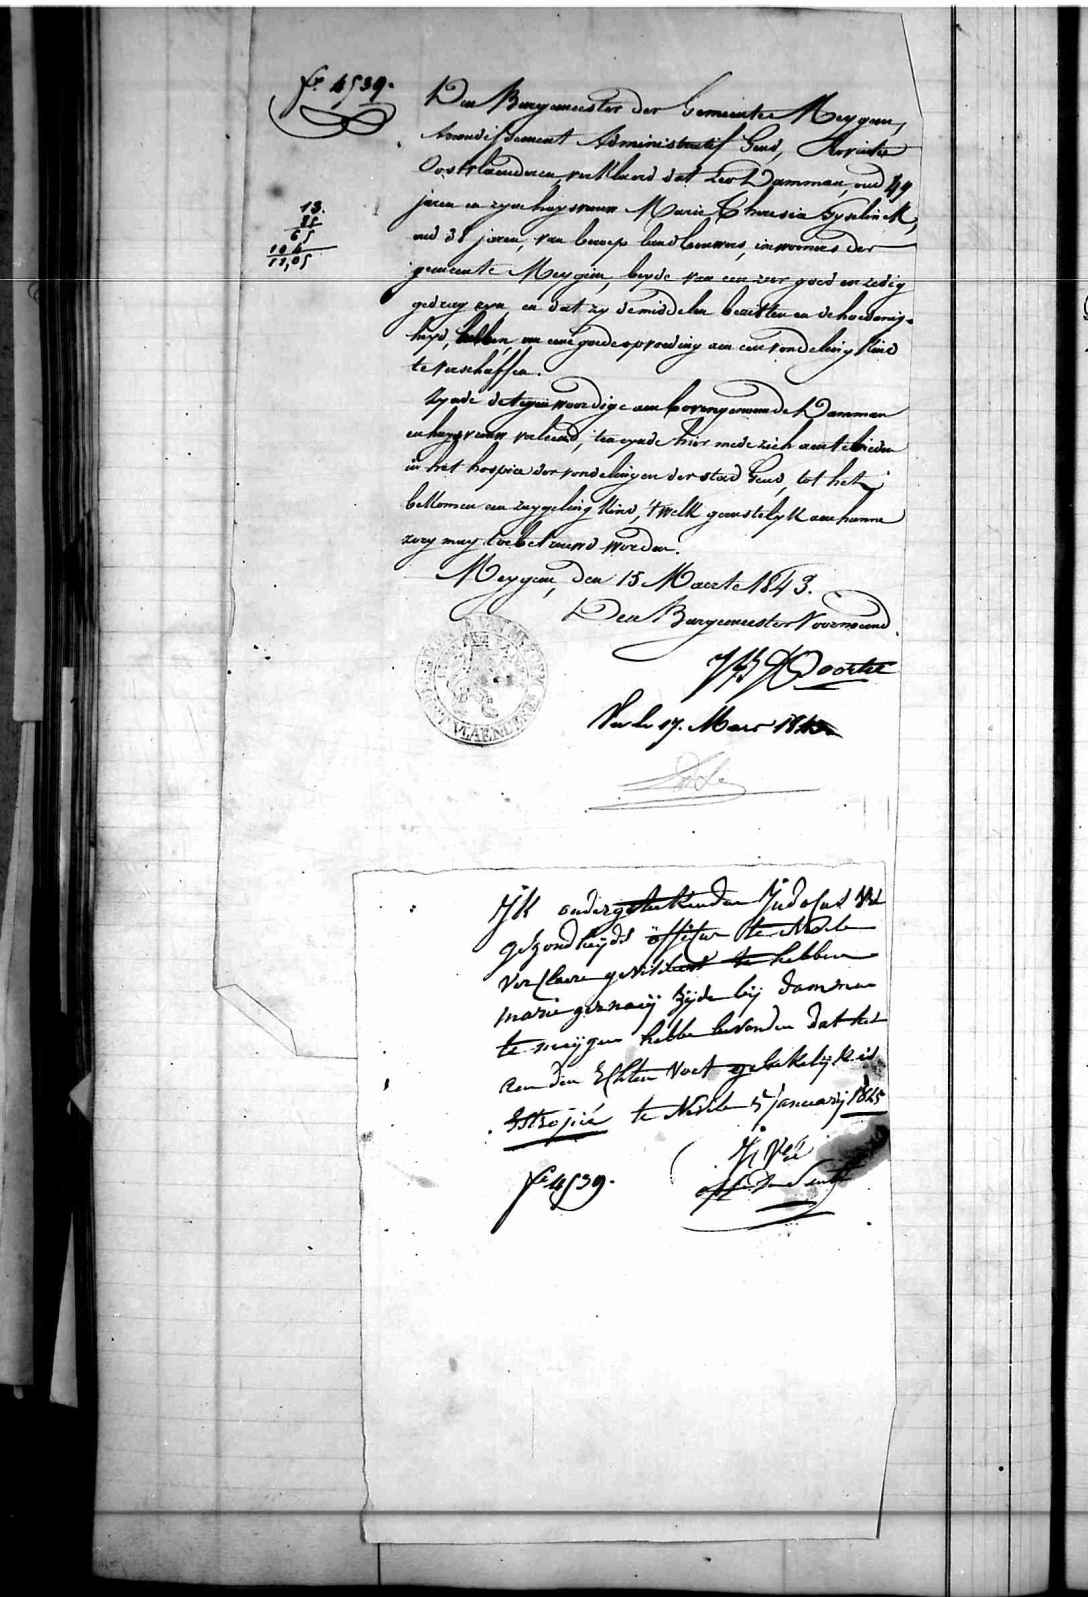 fo 4539.
Den Burgemeester der Gemeente Meygem,
Arrondissement Administratif Gend, Provintie
Oostvlaenderen, verklaerd dat Leo Damman, oud 49
jaren en zyne huysvrouw Marie Theresia Gyselinck,
oud 38 jaren, van beroep landbouwers, inwooners der
gemeente Meygem, beyde van een zeer goed en zedig
gedrag zyn, en dat zy de middelen bezitten en de hoedanig-
heyd, hebben om eene goede opvoeding aen een vondeling kind
te verschaffen.
Zynde de tegenwoordige aen bovengenoemde Damman
en huysvrouw verleend, ten eynde hier mede zich aen te bieden
in het hospice der vondelingen der stad Gend, tot het
bekomen een zuygeling kind, 't welk gunstelyk aen hunne
zorg mag toebetrouwd worden.
Meygem, den 15 Maerte 1843.
Den Burgemeester Voornoemd
13.
85
65
104
11,05
VLAENDEREN
Vu le 17. Mars 1843
Ik ondergeteekenden Judocus
gezondheyds officier te Nevele
verclaere gevisiteert te hebben
marie zynde bij damman
te meijgem hebbe bevonden dat het
aen den Echten voet gebrekelijk is
Estropié te Nevele 5 januarij 1845
fo 4539.